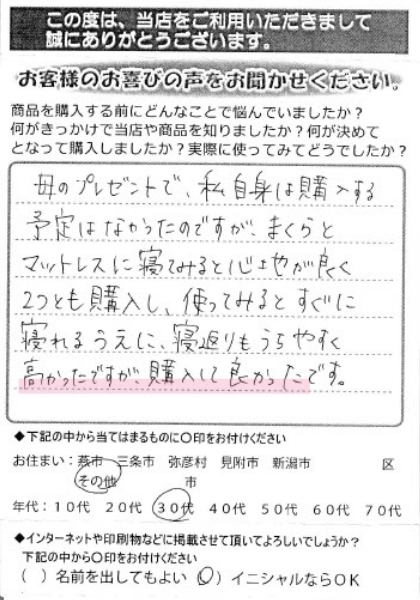 この度は、当店をご利用いただきまして
誠にありがとうございます。
お客様のお喜びの声をお聞かせください。
商品を購入する前にどんなことで悩んでいましたか？
何がきっかけで当店や商品を知りましたか？何が決めて
となって購入しましたか？実際に使ってみてどうでしたか？
母のプレゼントで、私自身は購入する
予定はなかったのですが、まくらと
マットレスに寝てみると心地が良く
2つとも購入し、使ってみるとすぐに
寝れるうえに、寝返りもうちやすく
高かったですが、購入して良かったです。
◆下記の中から当てはまるものに〇印をお付けください
お住まい：燕市 三条市 弥彦村 見附市 新潟市 区
その他 市
年代：10代 20代 30代 40代 50代 60代 70代
◆インターネットや印刷物などに掲載させて頂いてよろしいでしょうか？
下記の中から〇印をお付けください
（ ）名前を出してもよい（〇）イニシャルならOK